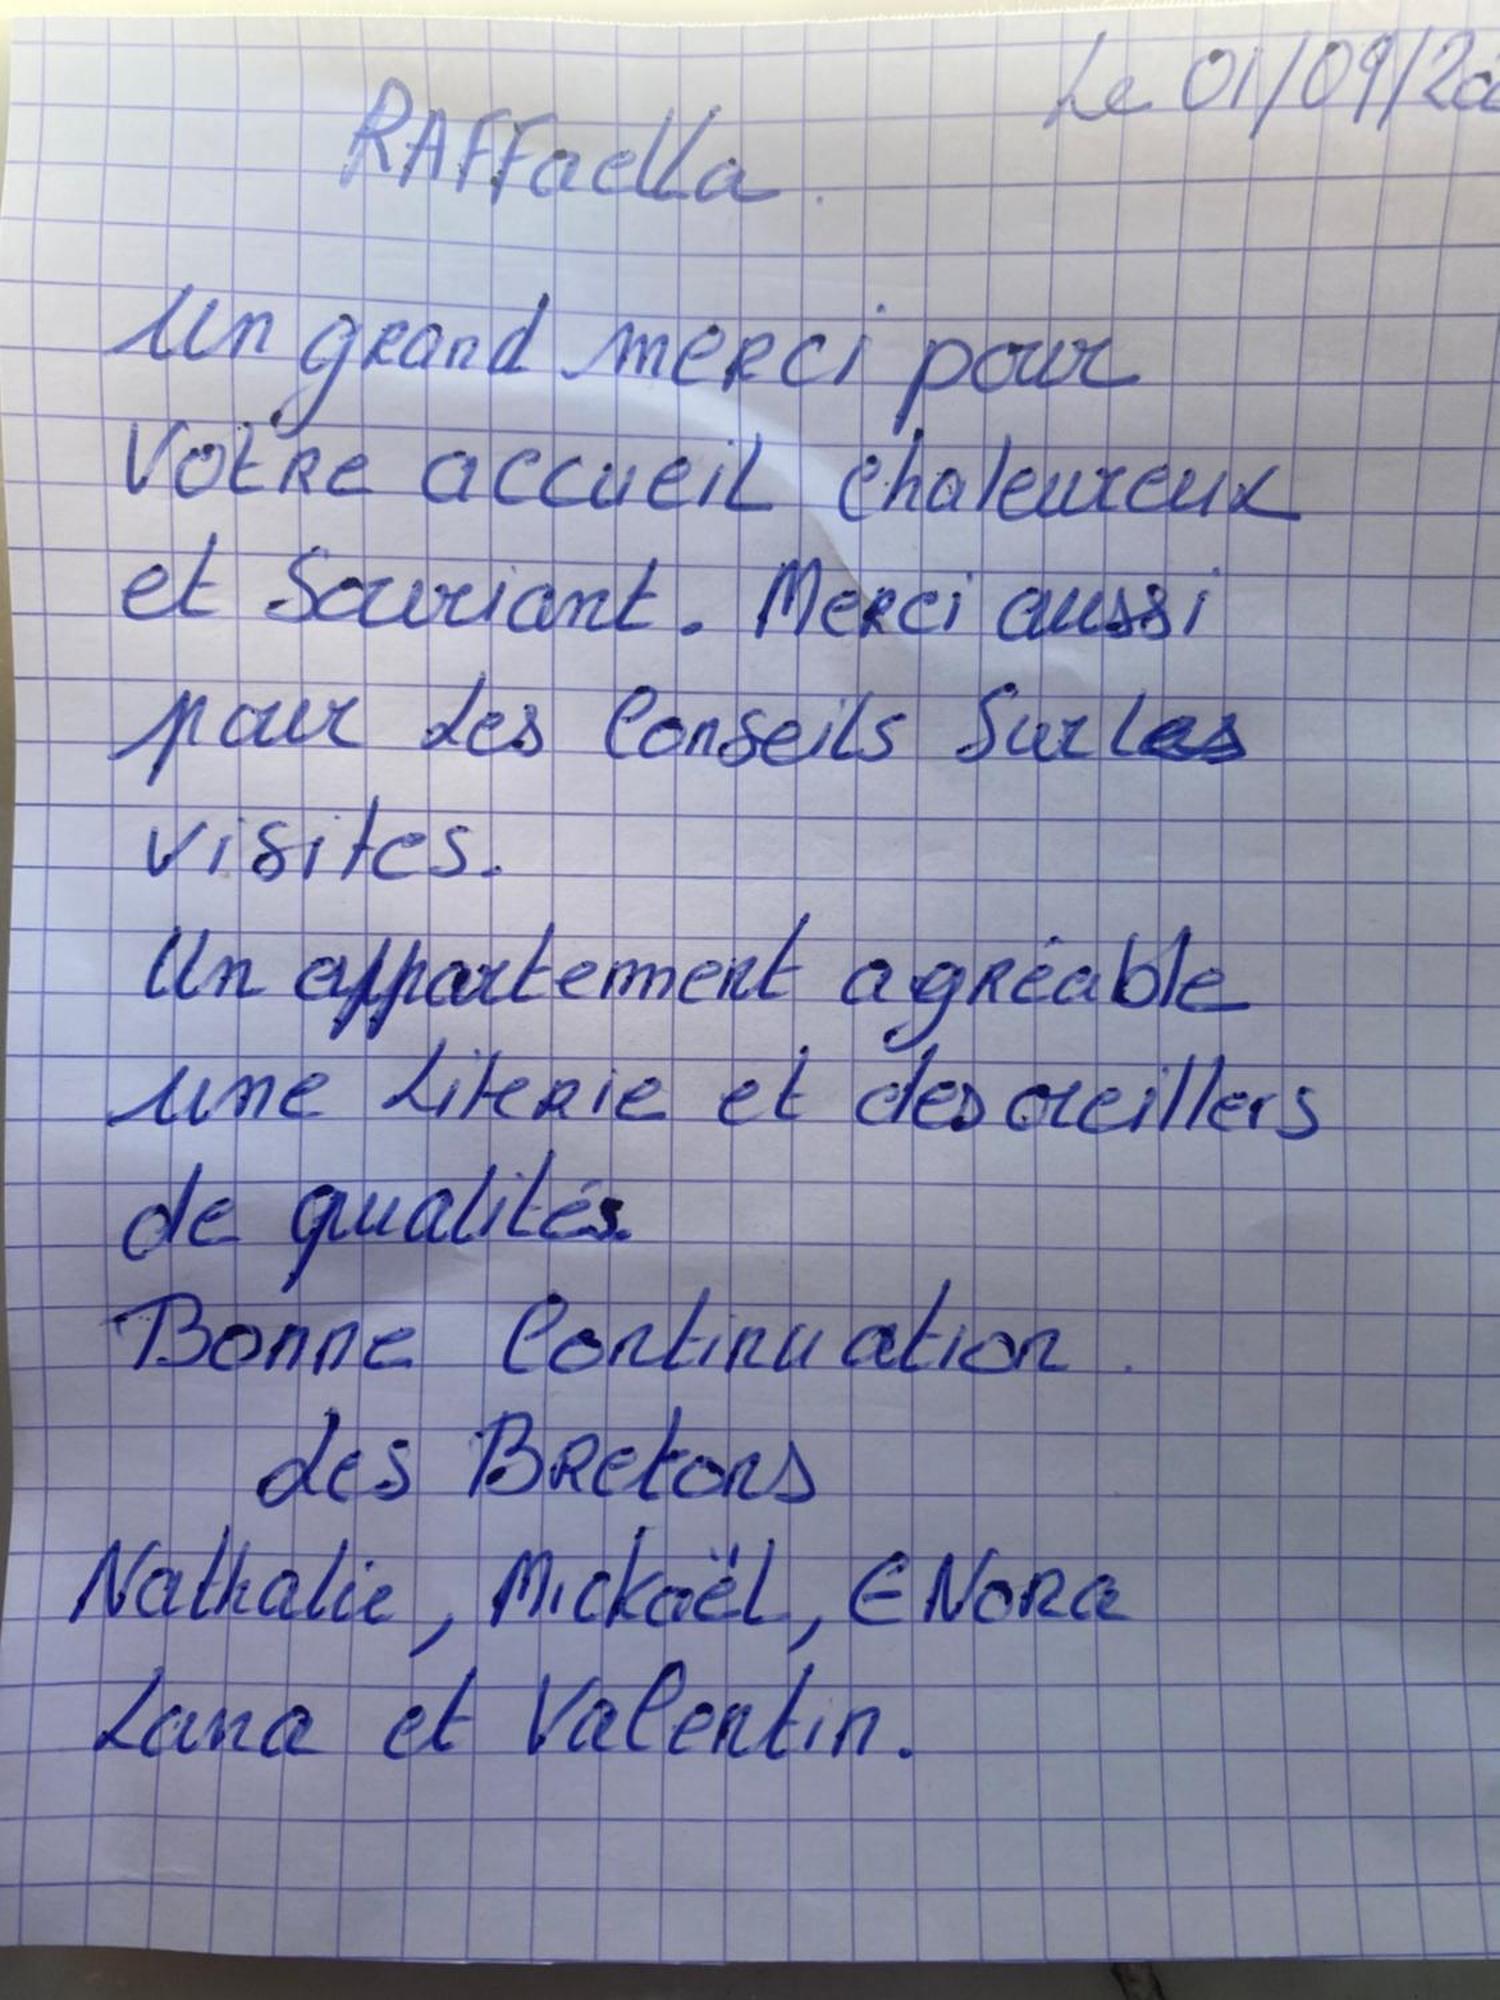 Le 01/09/20
RAFFaella.
Un grand merci pour
Votre accueil chaleureux
et Souriant. Merci aussi
pour Les Conseils Sur Les
visites.
Un appartement agréable
une Literie et des oreillers
de qualités.
Bonne Continuation.
des Bretons
Nathalie, Mickaël, ENORA
Lana et Valentin.